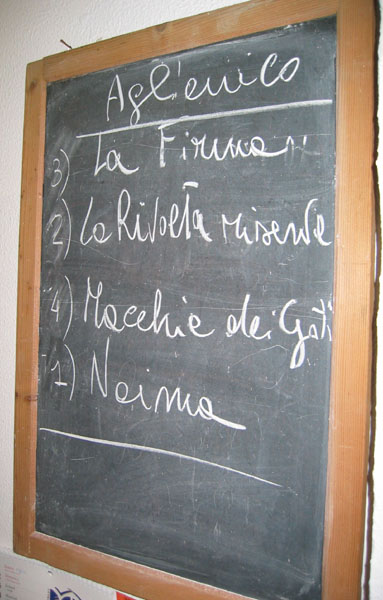 Aglienico
3) La Firma
2) La Rivolta riserva
4) Macchie dei Goti
1) Naima